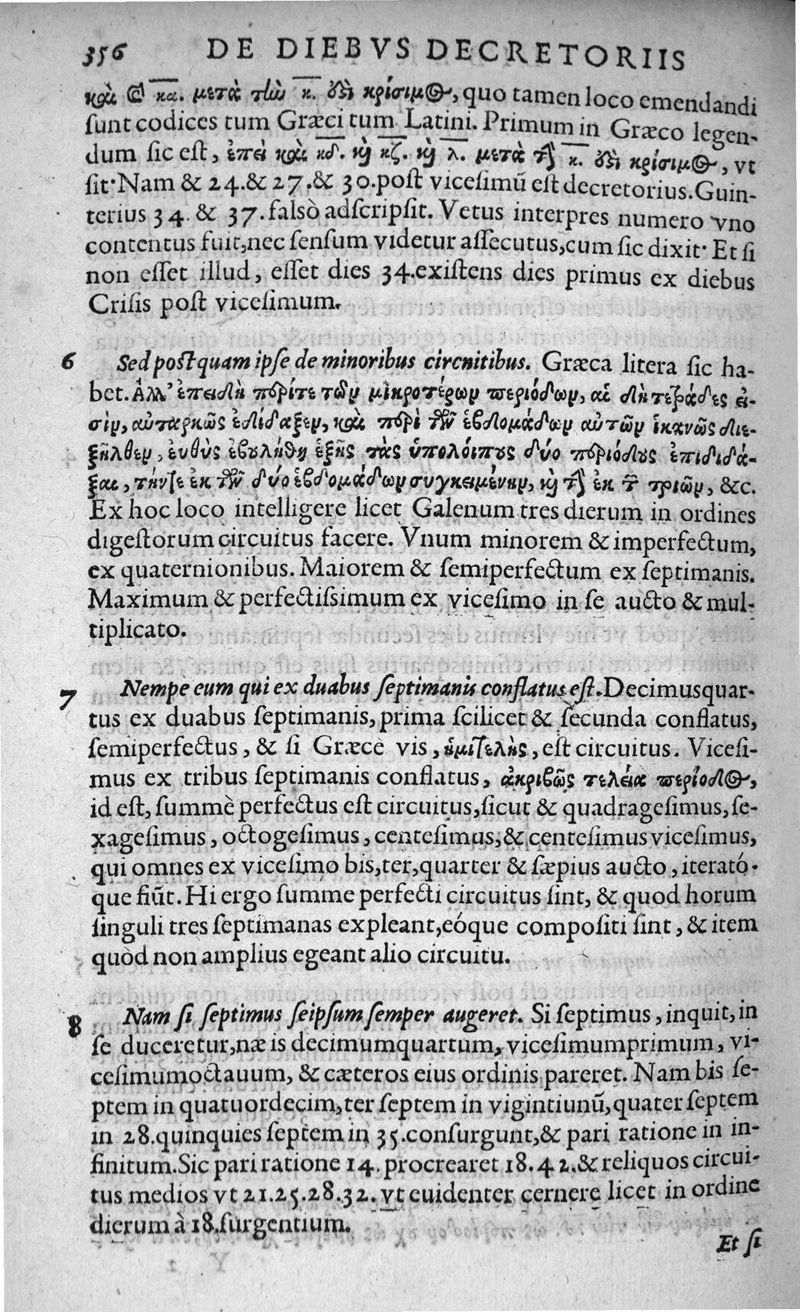 356 DE DIEBVS DECRETORIIS
καὶ ὁ κα. μετὰ τὴν κ. ἔστι κρίσιμος, quo tamen loco emendandi
ſunt codices tum Græci tum Latini. Primum in Græco legen-
dum ſic eſt, ἐπεὶ καὶ κδ. καὶ κζ. καὶ λ. μετὰ τὴν κ. ἔστι κρίσιμος, vt
ſit. Nam & 24. & 27. & 30. poſt viceſimũ eſt decretorius. Guin-
terius 34. & 37. falsò adſcripſit. Vetus interpres numero vno
contentus fuit, nec ſenſum videtur aſſecutus, cum ſic dixit. Et ſi
non eſſet illud, eſſet dies 34. exiſtens dies primus ex diebus
Criſis poſt viceſimum.
6 Sed poſtquam ipſe de minoribus circnitibus. Græca litera ſic ha-
bet. Ἀλλ' ἐπειδὴ περί τε τῶν μικροτέρων περιόδων, αἳ δὴ τετράδες εἰ-
σὶν, αὐταρκῶς ἐδίδαξεν, καὶ περὶ τῶν ἑβδομάδων αὐτῶν ἱκανῶς διε-
ξῆλθεν, εὐθὺς ἐβουλήθη ἑξῆς τὰς ὑπολοίπους δύο περιόδους ἐπιδιδά-
ξαι, τήν τε ἐκ τῶν δύο ἑβδομάδων συγκειμένην, καὶ τὴν ἐκ τῶν τριῶν, &c.
Ex hoc loco intelligere licet Galenum tres dierum in ordines
digeſtorum circuitus facere. Vnum minorem & imperfectum,
ex quaternionibus. Maiorem & ſemiperfectum ex ſeptimanis.
Maximum & perfectiſsimum ex viceſimo in ſe aucto & mul-
tiplicato.
7 Nempe eum qui ex duabus ſeptimanis conflatus eſt. Decimusquar-
tus ex duabus ſeptimanis, prima ſcilicet & ſecunda conflatus,
ſemiperfectus, & ſi Græcè vis, ἡμιτελὴς, eſt circuitus. Viceſi-
mus ex tribus ſeptimanis conflatus, ἀκριβῶς τελεία περίοδος,
id eſt, ſummè perfectus eſt circuitus, ſicut & quadrageſimus, ſe-
xageſimus, octogeſimus, centeſimus, & centeſimus viceſimus,
qui omnes ex viceſimo bis, ter, quarter & ſæpius aucto, iterató-
que fiũt. Hi ergo ſumme perfecti circuitus ſint, & quod horum
ſinguli tres ſeptimanas expleant, eóque compoſiti ſint, & item
quòd non amplius egeant alio circuitu.
8 Nam ſi ſeptimus ſeipſum ſemper augeret. Si ſeptimus, inquit, in
ſe duceretur, næ is decimumquartum, viceſimumprimum, vi-
ceſimumoctauum, & cæteros eius ordinis pareret. Nam bis ſe-
ptem in quatuordecim, ter ſeptem in vigintiunũ, quater ſeptem
in 28. quinquies ſeptem in 35. conſurgunt, & pari ratione in in-
finitum. Sic pari ratione 14. procrearet 18. 42. & reliquos circui-
tus medios vt 21. 25. 28. 32. vt euidenter cernere licet in ordine
dierum à 18. ſurgentium.
Et ſi